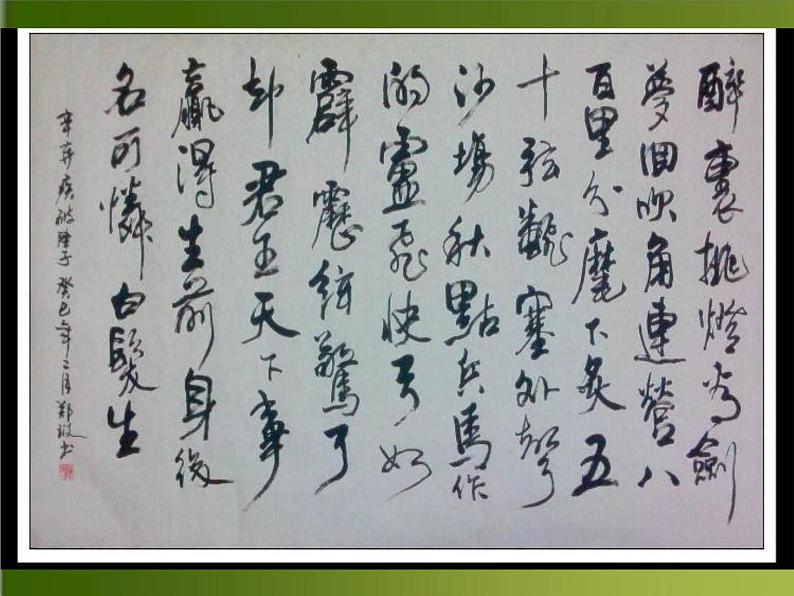 醉裏挑燈看劍
夢回吹角連營八
百里分麾下炙五
十弦翻塞外聲
沙場秋點兵馬作
的盧飛快弓如
霹靂絃驚了
却君王天下事
贏得生前身後
名可憐白髮生
辛弃疾破陣子 癸巳年二月 郑书